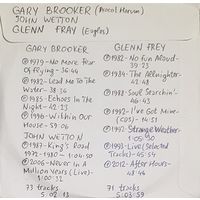 GARY BROOKER (Procol Harum)
JOHN WETTON
GLENN FRAY (Eagles)
GARY BROOKER
① 1979-No More Fear
Of Flying-36:44
② 1982-Lead Me To The
Water-38:56
③ 1985-Echoes In The
Night-42:51
④ 1996-Within Our
House-59:02
JOHN WETTON
⑤ 1987-King's Road
1972-1980-1:04:50
⑥ 2006-Never In A
Million Years (Live)-
1:00:32
73 tracks
5:02:13
GLENN FREY
① 1982-No Fun Aloud-
39:23
② 1984-The Allnighter-
42:48
③ 1988-Soul Searchin'-
46:43
④ 1992-I've Got Mine-
(CDS)-14:51
⑤ 1992-Strange Weather-
1:05:30
⑥ 1993-Live (Selected
Tracks)-45:59
⑦ 2012-After Hours-
48:44
71 tracks
5:03:59